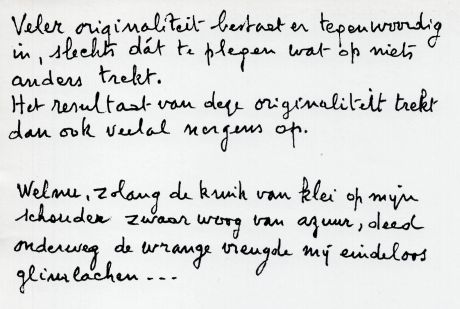 Veler originaliteit bestaat er tegenwoordig
in, slechts dát te plegen wat op niets
anders trekt.
Het resultaat van deze originaliteit trekt
dan ook veelal nergens op.
Welnu, zolang de kruik van klei op mijn
schouder zwaar woog van azuur, deed
onderweg de wrange vreugde mij eindeloos
glimlachen ---